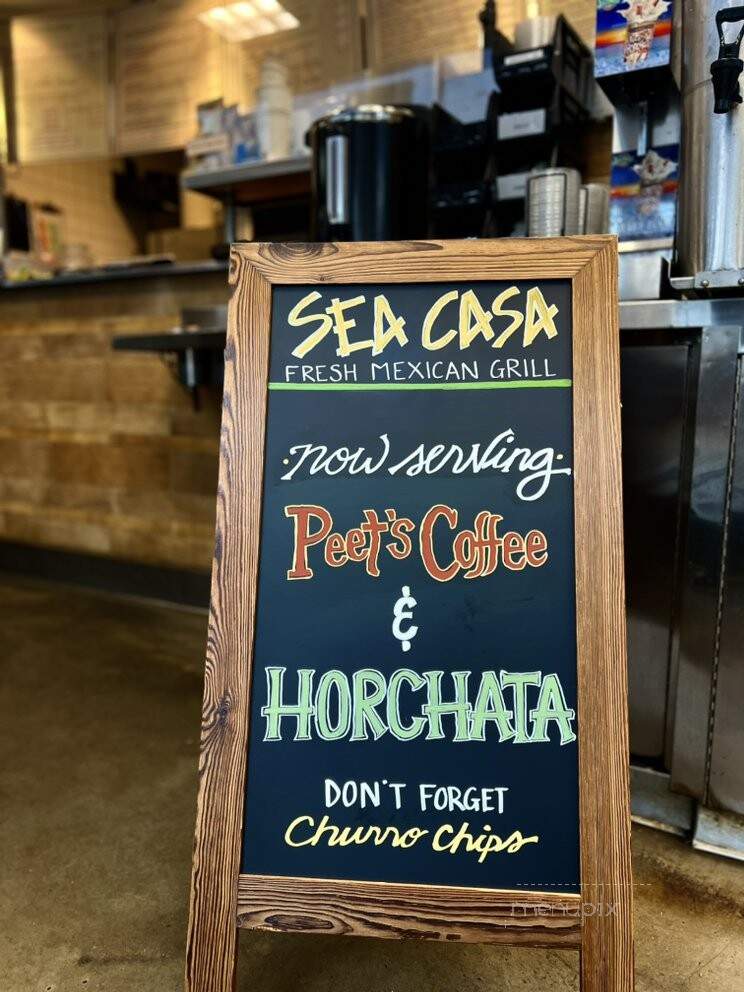 SEA CASA
FRESH MEXICAN GRILL
now serving
Peet's Coffee
&
HORCHATA
DON'T FORGET
Churro Chips
menupix